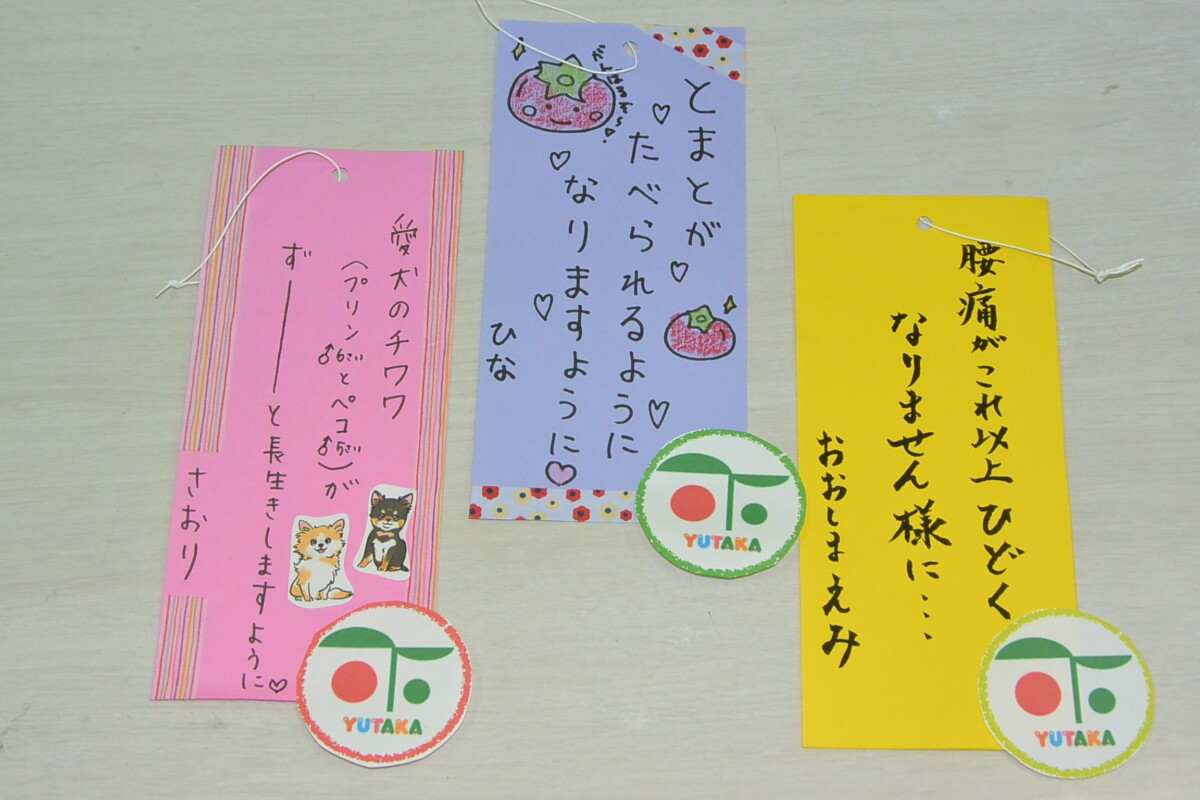 愛犬のチワワ
(プリン♂6さいとペコ♂5さい)が
ず――――と長生きしますように♡
さおり
YUTAKA
とまとが
♡たべられるように
♡なりますように♡
ひな
YUTAKA
腰痛がこれ以上ひどく
なりません様に…
おおしまえみ
YUTAKA